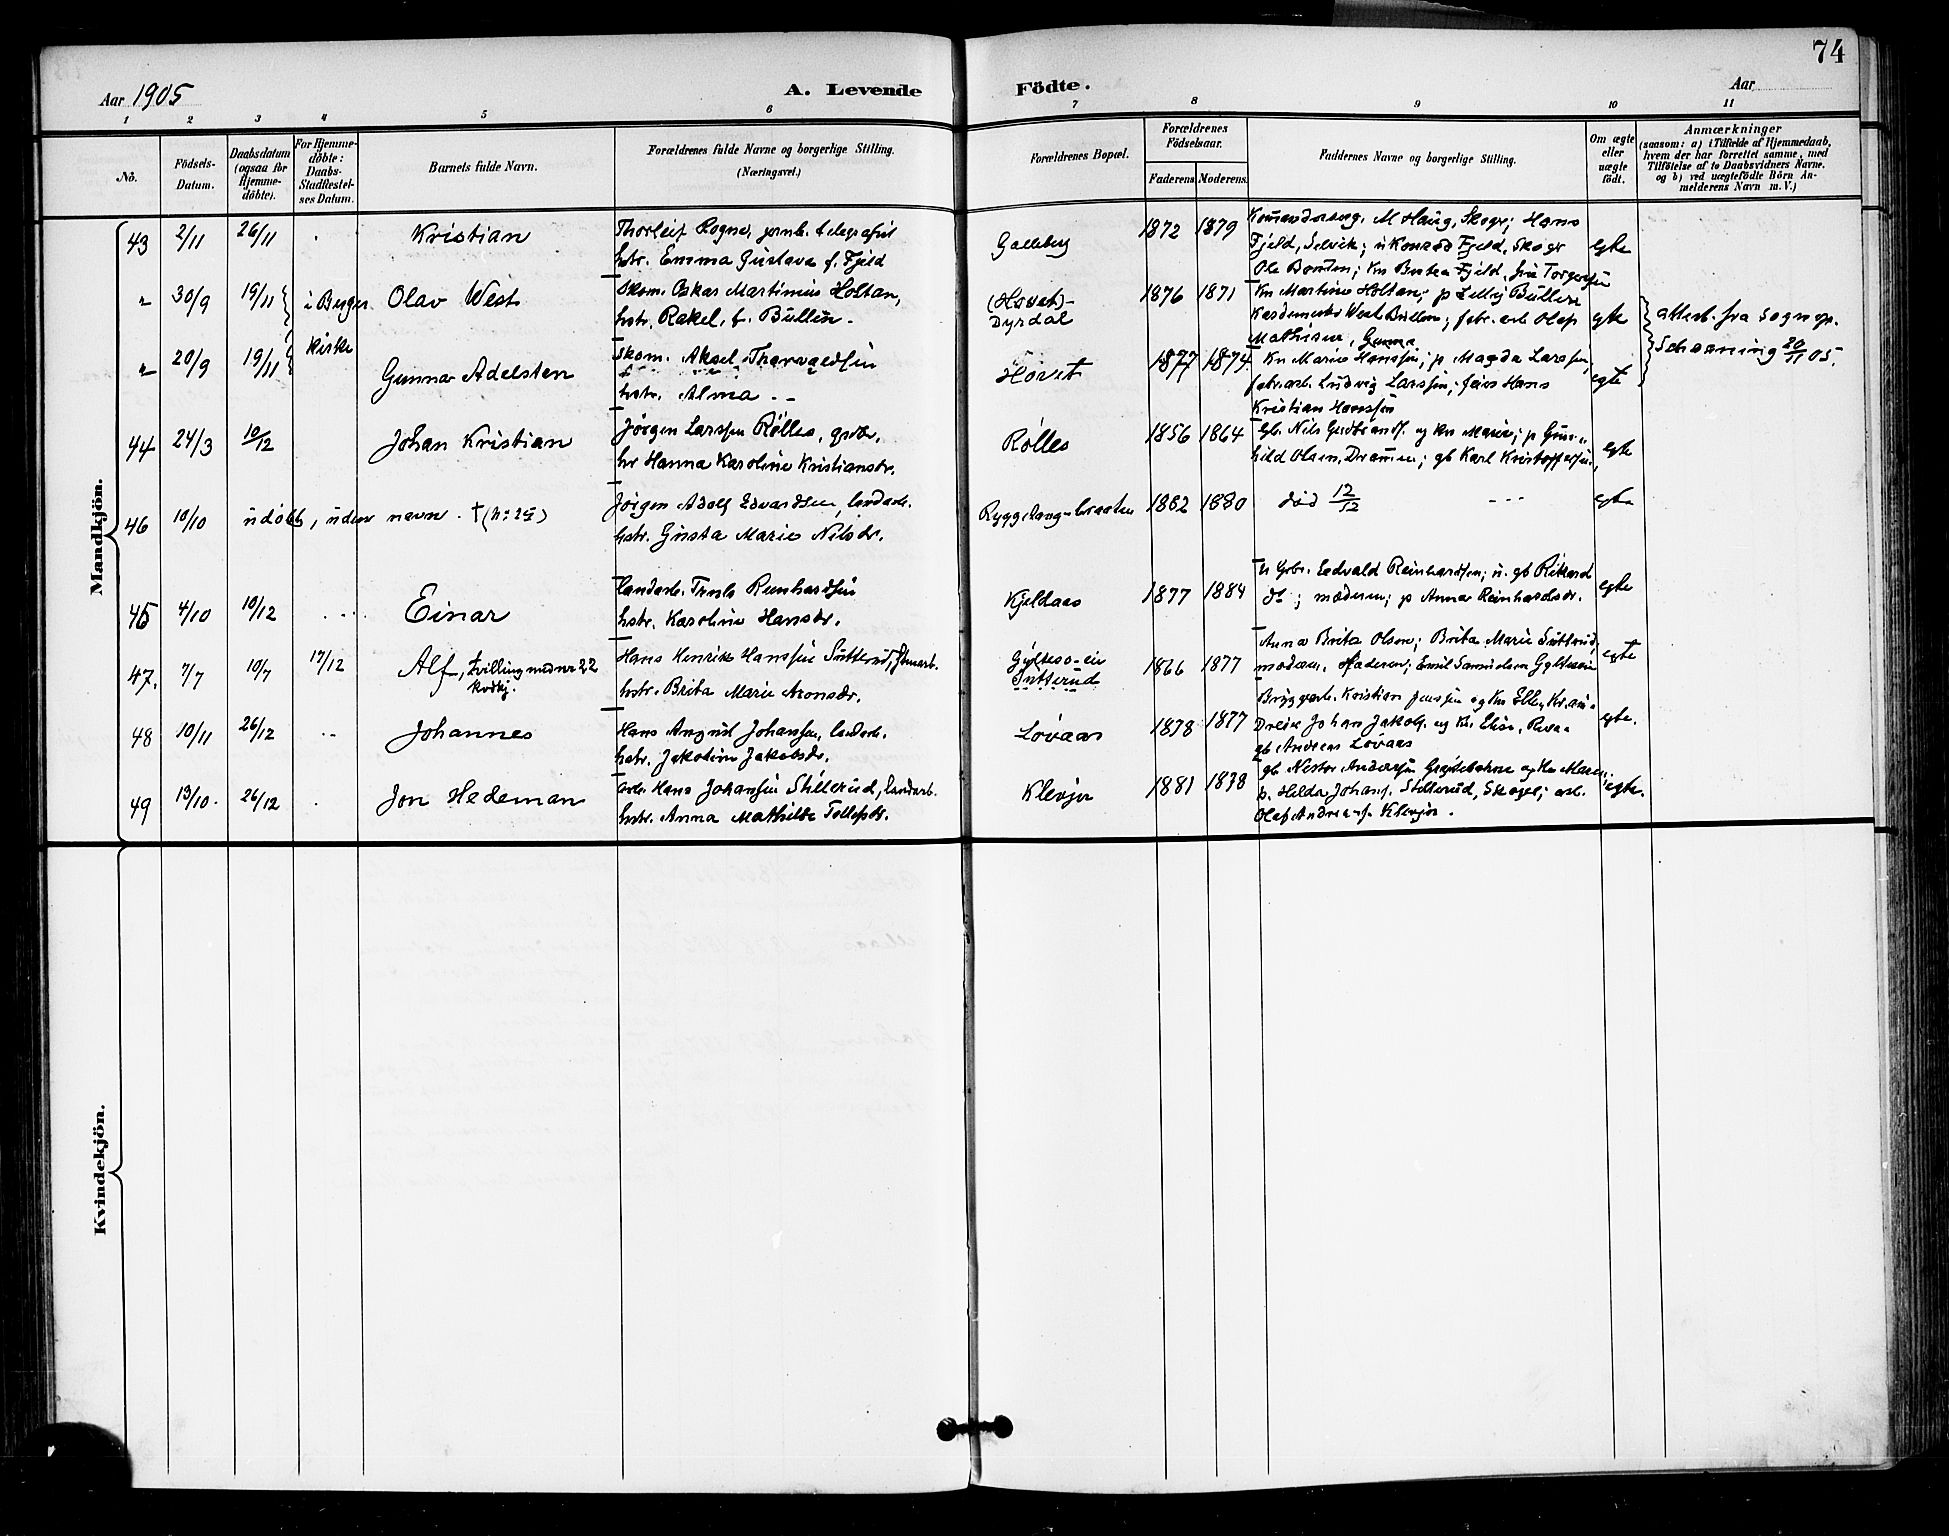 74
Aar 1905
A. Levende Födte.
Aar
1 2 3 4 5 6 7 8 9 10 11
No.
Födsels-Datum.
Daabsdatum (ogsaa for Hjemmedöbte).
For Hjemmedöbte: Daabs-Stadfæstelses Datum.
Barnets fulde Navn.
Forældrenes fulde Navne og borgerlige Stilling.
(Næringsvei.)
Forældrenes Bopæl.
Forældrenes Födselsaar.
Faderens Moderens.
Faddernes Navne og borgerlige Stilling.
Om ægte eller uægte födt.
Anmærkninger
(saasom: a) i Tilfælde af Hjemmedaab,
hvem der har forrettet samme, med
Tilföielse af to Daabsvidners Navne,
og b) ved uægtefödte Börn An-
melderens Navn m. V.)
Mandkjön.
43 2/11 26/11 Kristian
Thorleif Rogne, jernb. telegrafist
hstr. Emma Gustava f. Fjeld
Galleberg 1872 1879
M Haug, Skoger; Hans
Fjeld, Selvik; u Konrad Fjeld, Skoger
Ole Bonden; Berta Fjeld, frü Torgersen
egte
" 30/9 19/11 i Berger kirke Olav West
Skom. Oskar Martinius Holtan,
hstr. Rakel, f. Büllen.
(Hovet)-
Dyrdal 1876 1871
Kn Martine Holtan; p Büllen
West Büllen; fabr. arb Olaf
Mathisen,
egte
atterb. fra sognepr.
Schaaning 20/11 05.
" 20/9 19/11 Gunnar Adelsten
Skom. Aksel Thorvaldsen
hstr. Alma - -
Hovet 1877 1874
Kn Marie Hanssen; p Magda Larssen,
fabr. arb. Ludvig Larssen; Hans
Kristian Hanssen
egte
44 24/3 10/12 Johan Kristian
Jörgen Larssen Rølles, grdbr.
hr Hanna Karoline Kristiansdr.
Rølles 1856 1864
Gb. Nils Gudbrands. og kn Marie; p Gun-
hild Olsen, Drammen; gb Karl Kristoffersen,
egte
46 10/10 üdøbt, üden navn. †
Jörgen Adolf Edvardsen, landarb.
hstr. Gusta Marie Nilsdr.
1882 1880 død 12/12 - - - egte
45 4/10 10/12 Einar
landarb. Truls Reinhardsen
hstr. Karoline Hansdr.
Kjeldaas 1877 1884
u Grbr. Edvald Reinhardsen; u. gb Rikard
do; moderen; p Anna Reinhardsdr.
egte
47. 7/7 10/7 17/12 Alf, tvilling med nr 22
kvdkj.
Hans Henrik Hanssen Sütterud,
hstr. Brita Marie Aronsdr.
Sütterud 1866 1877
Anna Brita Olsen; Brita Marie Sütterud,
moderen, Faderen; Emil Samuelsen
egte
48 10/11 26/12 Johannes
Hans August Johansen, landarb.
hstr. Jakobine Jakobsdr.
Løvaas 1878 1877
Bryggerarb. Kristian Jenssen og kn Ellen,
Johan Jakobs. og Kn Elise,
gb Andreas Løvaas
egte.
49 13/10. 26/12 Jon Hedeman
Hans Johansen Stillerud, landarb.
hstr. Anna Mathilde Tollefsdr.
Klevjer 1881 1878
gb. Nestor Anderssen og kn Maren
p. Hilda Johans. Stillerud, Skoger; arb.
Olaf Andreas. Klevjer.
egte.
Kvindekjön.